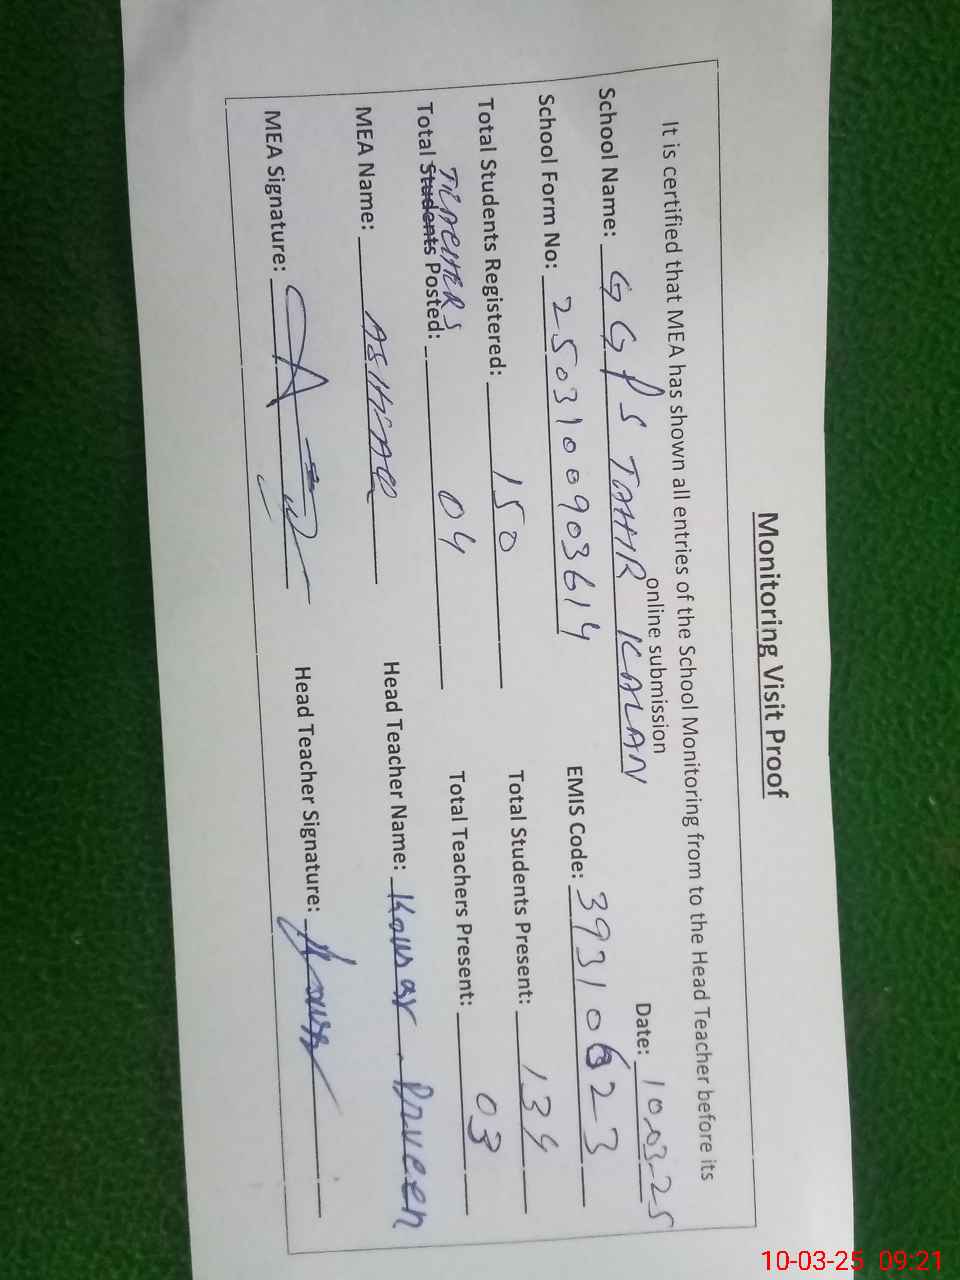 Monitoring Visit Proof
It is certified that MEA has shown all entries of the School Monitoring from to the Head Teacher before its
online submission
Date: 10.03-25
School Name: GGPS TAHIR KALAN
School Form No: 2503100903614 EMIS Code: 39310623
Total Students Registered: 150 Total Students Present: 134
TEACHERS
Total Students Posted: 04 Total Teachers Present: 03
MEA Name: ASHFAQ Head Teacher Name: Kousar Prveen
MEA Signature: Head Teacher Signature:
10-03-25 09:21